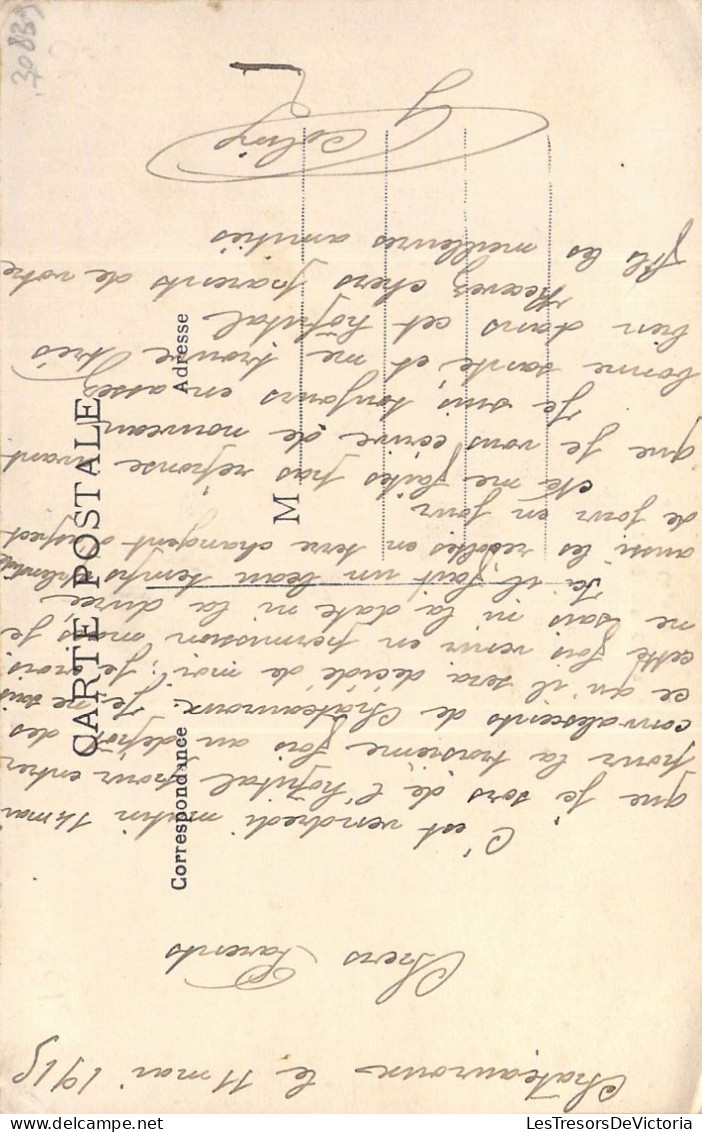 Chateauroux le 11 mai 1915
Chers Parents
C'est vendredi matin 14 mai
que je sors de l'hôpital pour entrer
pour la troisième fois au dépôt des
convalescents de Châteauroux. Je ne sais
ce qu'il sera décidé de moi; je crois
cette fois venir en permission mais je
ne sais ni la date ni la durée.
Ici il fait un beau temps
aussi les récoltes en terre changent d'aspect
de jour en jour.
Ne me faites pas réponse avant
que je vous écrive de nouveau
Je suis toujours en assez
bonne santé et me trouve très
bien dans cet hôpital
Recevez chers parents de votre
fils les meilleures amitiés
CARTE POSTALE
Correspondance
Adresse
M
30839
LesTresorsDeVictoria